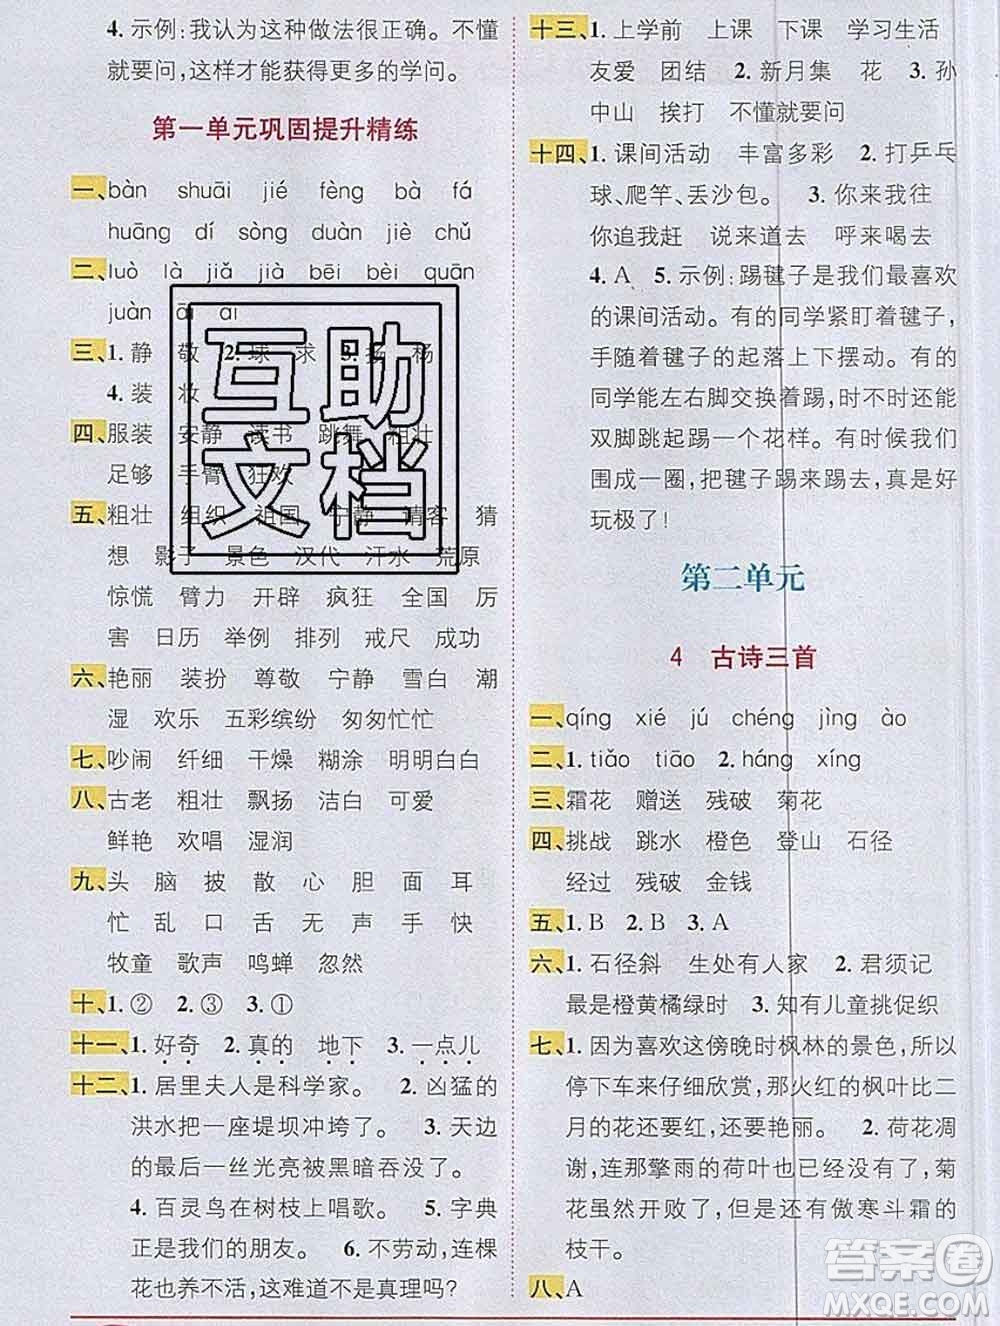 4. 示例:我认为这种做法很正确。不懂
就要问,这样才能获得更多的学问。
第一单元巩固提升精练
一、bàn shuāi jié fèng bà fá
huāng dí sòng duàn jiè chǔ
二、luò là jiǎ jià bēi bèi quān
juàn āi ai
三、1. 静 敬 2. 球 求 3. 扬 杨
4. 装 妆
四、服装 安静 读书 跳舞 粗壮
足够 手臂 狂欢
五、粗壮 组织 祖国 宁静 请客 猜
想 影子 景色 汉代 汗水 荒原
惊慌 臂力 开辟 疯狂 全国 厉
害 日历 举例 排列 戒尺 成功
六、艳丽 装扮 尊敬 宁静 雪白 潮
湿 欢乐 五彩缤纷 匆匆忙忙
七、吵闹 纤细 干燥 糊糊涂涂 明明白白
八、古老 粗壮 飘扬 洁白 可爱
鲜艳 欢唱 湿润
九、头 脑 披 散 心 胆 面 耳
忙 乱 口 舌 无 声 手 快
牧童 歌声 鸣蝉 忽然
十、1. ② 2. ③ 3. ①
十一、1. 好奇 2. 真的 地下 3. 一点儿
十二、1. 居里夫人是科学家。 2. 凶猛的
洪水把一座堤坝冲垮了。 3. 天边
的最后一丝光亮被黑暗吞没了。
4. 百灵鸟在树枝上唱歌。 5. 字典
正是我们的朋友。 6. 不劳动,连棵
花也养不活,这难道不是真理吗?
十三、1. 上学前 上课 下课 学习生活
友爱 团结 2. 新月集 花 3. 孙
中山 挨打 不懂就要问
十四、1. 课间活动 丰富多彩 2. 打乒乓
球、爬竿、丢沙包。 3. 你来我往
你追我赶 说来道去 呼来喝去
4. A 5. 示例:踢毽子是我们最喜欢
的课间活动。有的同学紧盯着毽子,
手随着毽子的起落上下摆动。有的
同学能左右脚交换着踢,时不时还能
双脚跳起踢一个花样。有时候我们
围成一圈,把毽子踢来踢去,真是好
玩极了!
第二单元
4 古诗三首
一、qíng xié jú chéng jìng ào
二、1. tiǎo tiāo 2. háng xíng
三、霜花 赠送 残破 菊花
四、挑战 跳水 橙色 登山 石径
经过 残破 金钱
五、1. B 2. B 3. A
六、1. 石径斜 生处有人家 2. 君须记
最是橙黄橘绿时 3. 知有儿童挑促织
七、1. 因为喜欢这傍晚时枫林的景色,所以
停下车来仔细欣赏,那火红的枫叶比二
月的花还要红,还要艳丽。 2. 荷花凋
谢,连那擎雨的荷叶也已经没有了,菊
花虽然开败了,但是还有傲寒斗霜的
枝干。
八、A
互助
文档
答案圈
MXQE.COM